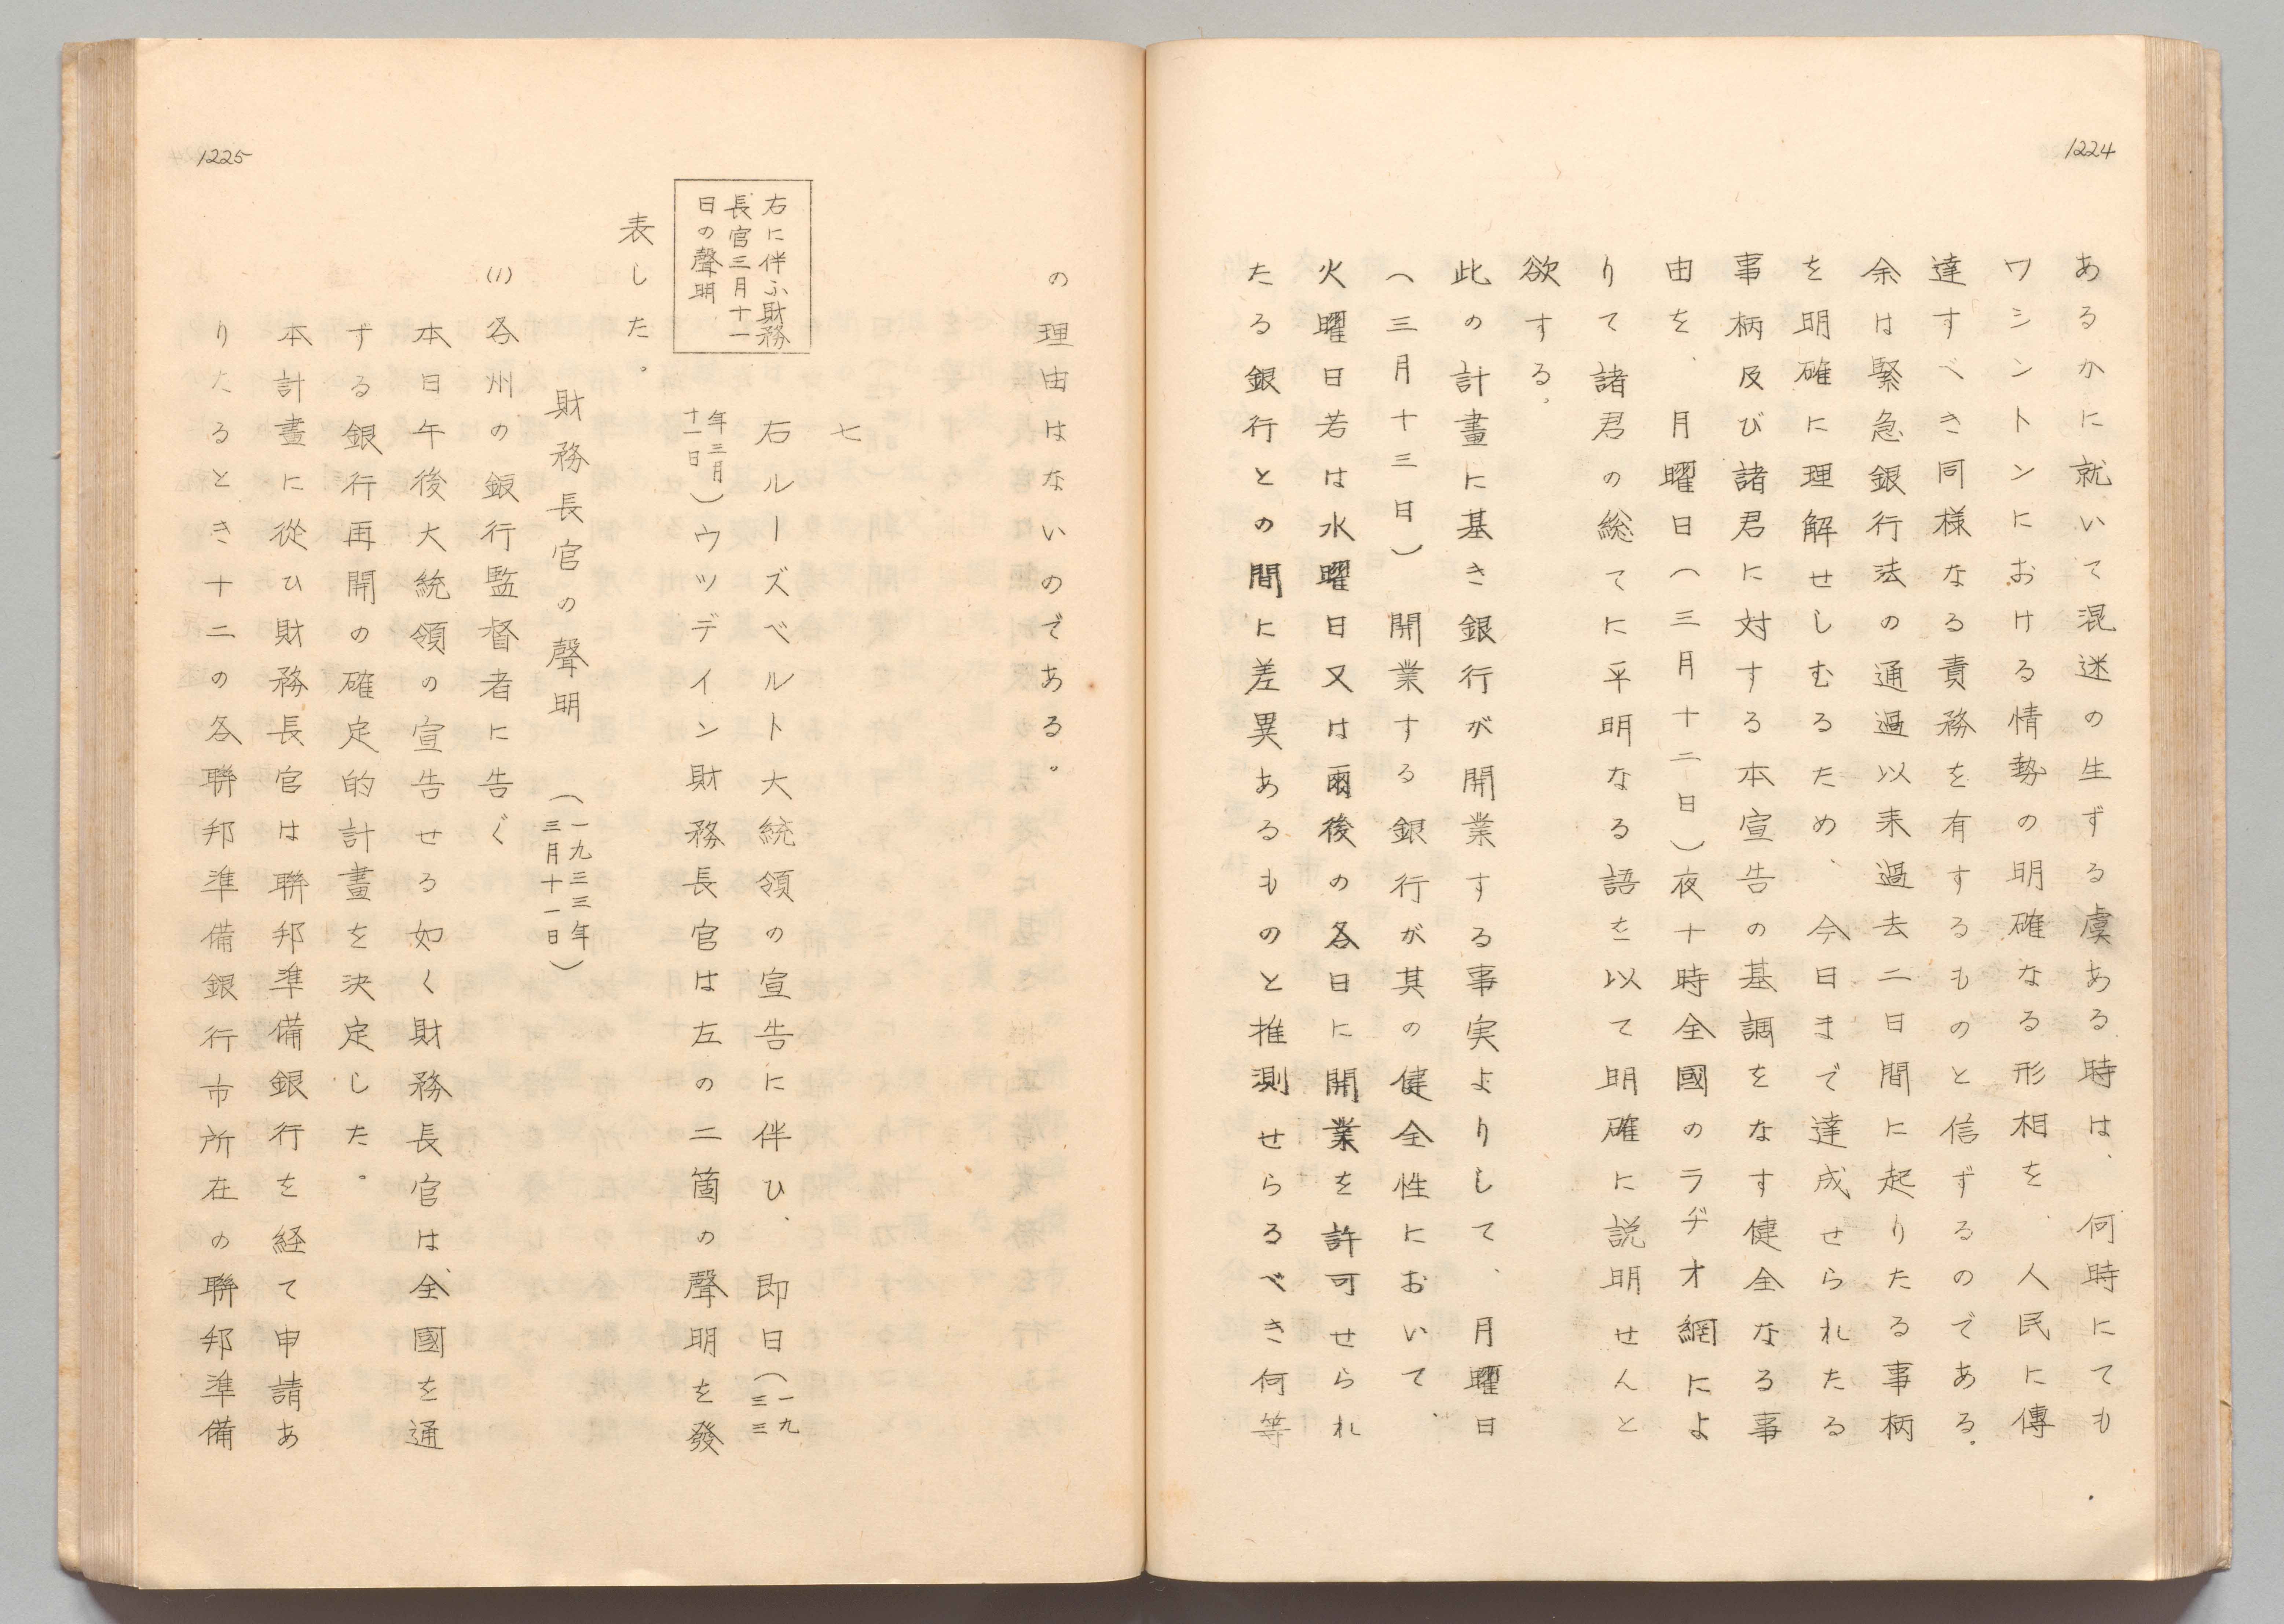 1224
あるかに就いて混迷の生ずる虞ある時は、何時にても
ワシントンにおける情勢の明確なる形相を、人民に傳
達すべき同様なる責務を有するものと信ずるのである。
余は緊急銀行法の通過以来過去二日間に起りたる事柄
を明確に理解せしむるため、今日まで達成せられたる
事柄及び諸君に対する本宣告の基調をなす健全なる事
由を、月曜日(三月十二日)夜十時全國のラヂオ網によ
りて諸君の総てに平明なる語を以て明確に説明せんと
欲する。
此の計畫に基き銀行が開業する事実よりして、月曜日
(三月十三日)開業する銀行が其の健全性において、
火曜日若は水曜日又は爾後の各日に開業を許可せられ
たる銀行との間に差異あるものと推測せらるべき何等
1225
の理由はないのである。
七
右に伴ふ財務
長官三月十一
日の聲明
右ルーズベルト大統領の宣告に伴ひ、即日(一九三三
年三月十一日)ウッデイン財務長官は左の二箇の聲明を發
表した。
財務長官の聲明(一九三三年三月十一日)
(1)各州の銀行監督者に告ぐ
本日午後大統領の宣告せる如く財務長官は、全國を通
ずる銀行再開の確定的計畫を決定した。
本計畫に從ひ財務長官は聯邦準備銀行を経て申請あ
りたるとき十二の各聯邦準備銀行市所在の聯邦準備